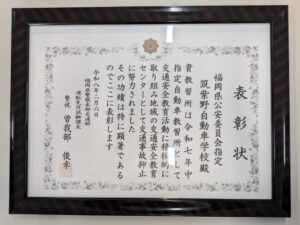 表彰状
福岡県公安委員会指定
筑紫野自動車学校殿
貴教習所は令和七年中
指定自動車教習所として
交通安全教育活動に積極的に
取り組み地域の交通安全教育
センターとして交通事故抑止
に努力されました
その功績は特に顕著である
のでここに表彰します
令和八年二月六日
福岡県警察本部交通部
運転免許試験課長
警視 曽我部 俊幸